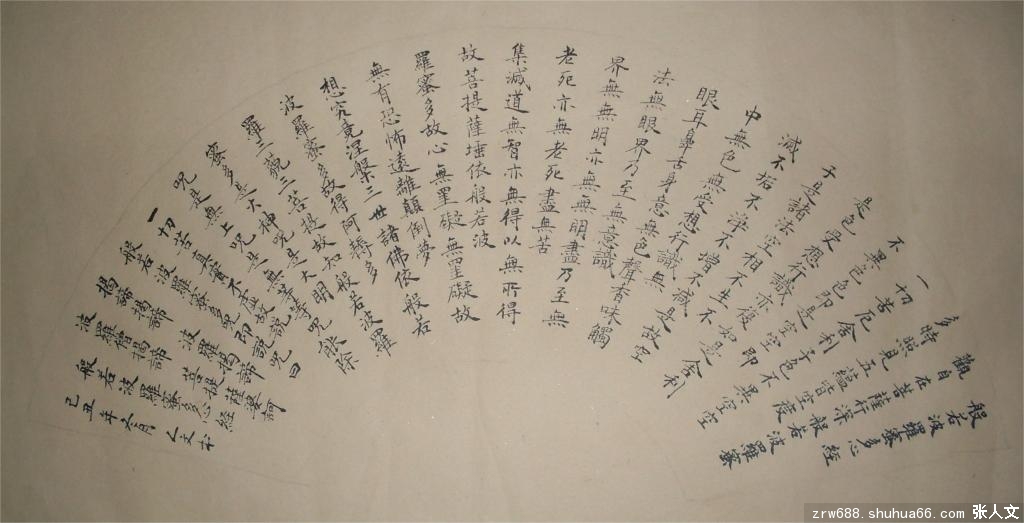 般若波羅蜜多心經
觀自在菩薩行深般若波羅蜜
多時照見五蘊皆空度
一切苦厄舍利子色不異空空
不異色色即是空空即
是色受想行識亦復如是舍利
子是諸法空相不生不
滅不垢不淨不增不減是故空
中無色無受想行識無
眼耳鼻舌身意無色聲香味觸
法無眼界乃至無意識
界無無明亦無無明盡乃至無
老死亦無老死盡無苦
集滅道無智亦無得以無所得
故菩提薩埵依般若波
羅蜜多故心無罣礙無罣礙故
無有恐怖遠離顛倒夢
想究竟涅槃三世諸佛依般若
波羅蜜多故得阿耨多
羅三藐三菩提故知般若波羅
蜜多是大神呪是大明
呪是無上呪是無等等呪能除
一切苦真實不虛故說
般若波羅蜜多呪即說呪曰
揭諦揭諦 波羅揭諦
波羅僧揭諦 菩提薩婆訶
般若波羅蜜多心經
己丑年六月人文书
zrw688.shuhua66.com 张人文